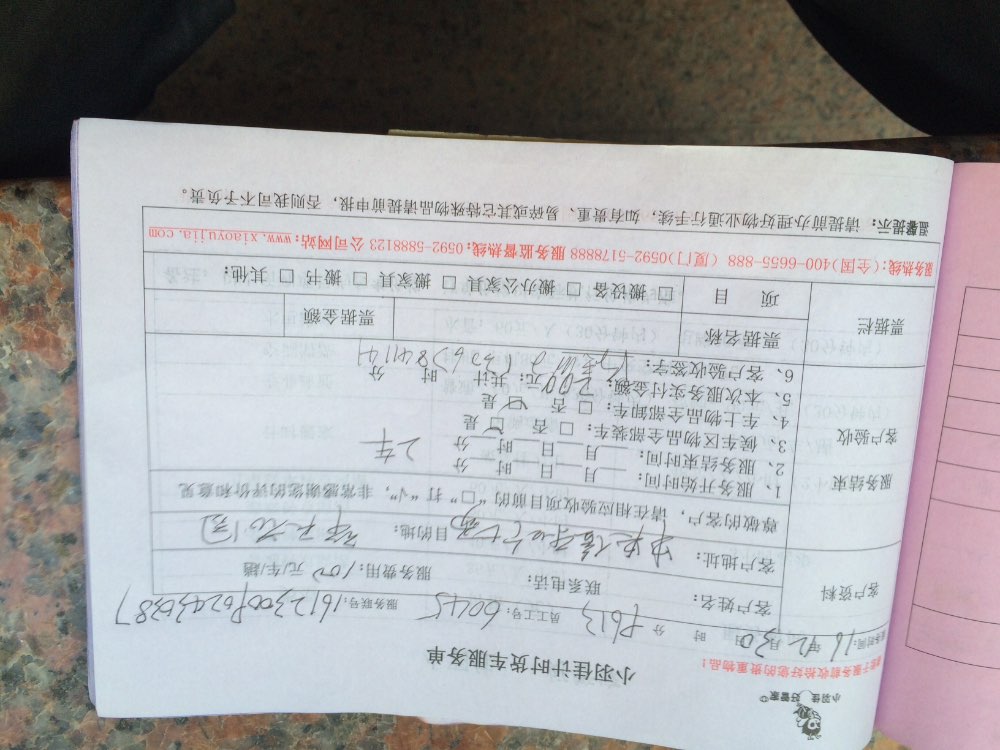 小羽佳 好管家
小羽佳计时货车服务单
请于服务前收拾好您的贵重物品！
服务时间：16年12月30日 时 分 P613 员工工号：6045 服务联号：161230
客户资料
客户姓名： 联系电话： 服务费用：100元/车/趟
客户地址： 目的地：
尊敬的客户，请在相应验收项目前的“□”打“√”，非常感谢您的评价和意见
服务结束
客户验收
1、服务开始时间： 月 日 时 分
2、服务结束时间： 月 日 时 分 2车
3、候车区物品全部装车：□否 □是
4、车上物品全部卸车：□否 □是
5、本次服务实付金额：200元；共计 时 分
6、客户验收签字：
票据栏
票据名称 票据金额
项 目 □搬设备 □搬办公家具 □搬家具 □搬书 □其他：
服务热线：(全国)400-6655-888 (厦门)0592-5178888 服务监督热线：0592-5888123 公司网站：www.xiaoyujia.com
温馨提示：请提前办理好物业通行手续，如有贵重、易碎或其它特殊物品请提前申报，否则我司不予负责。